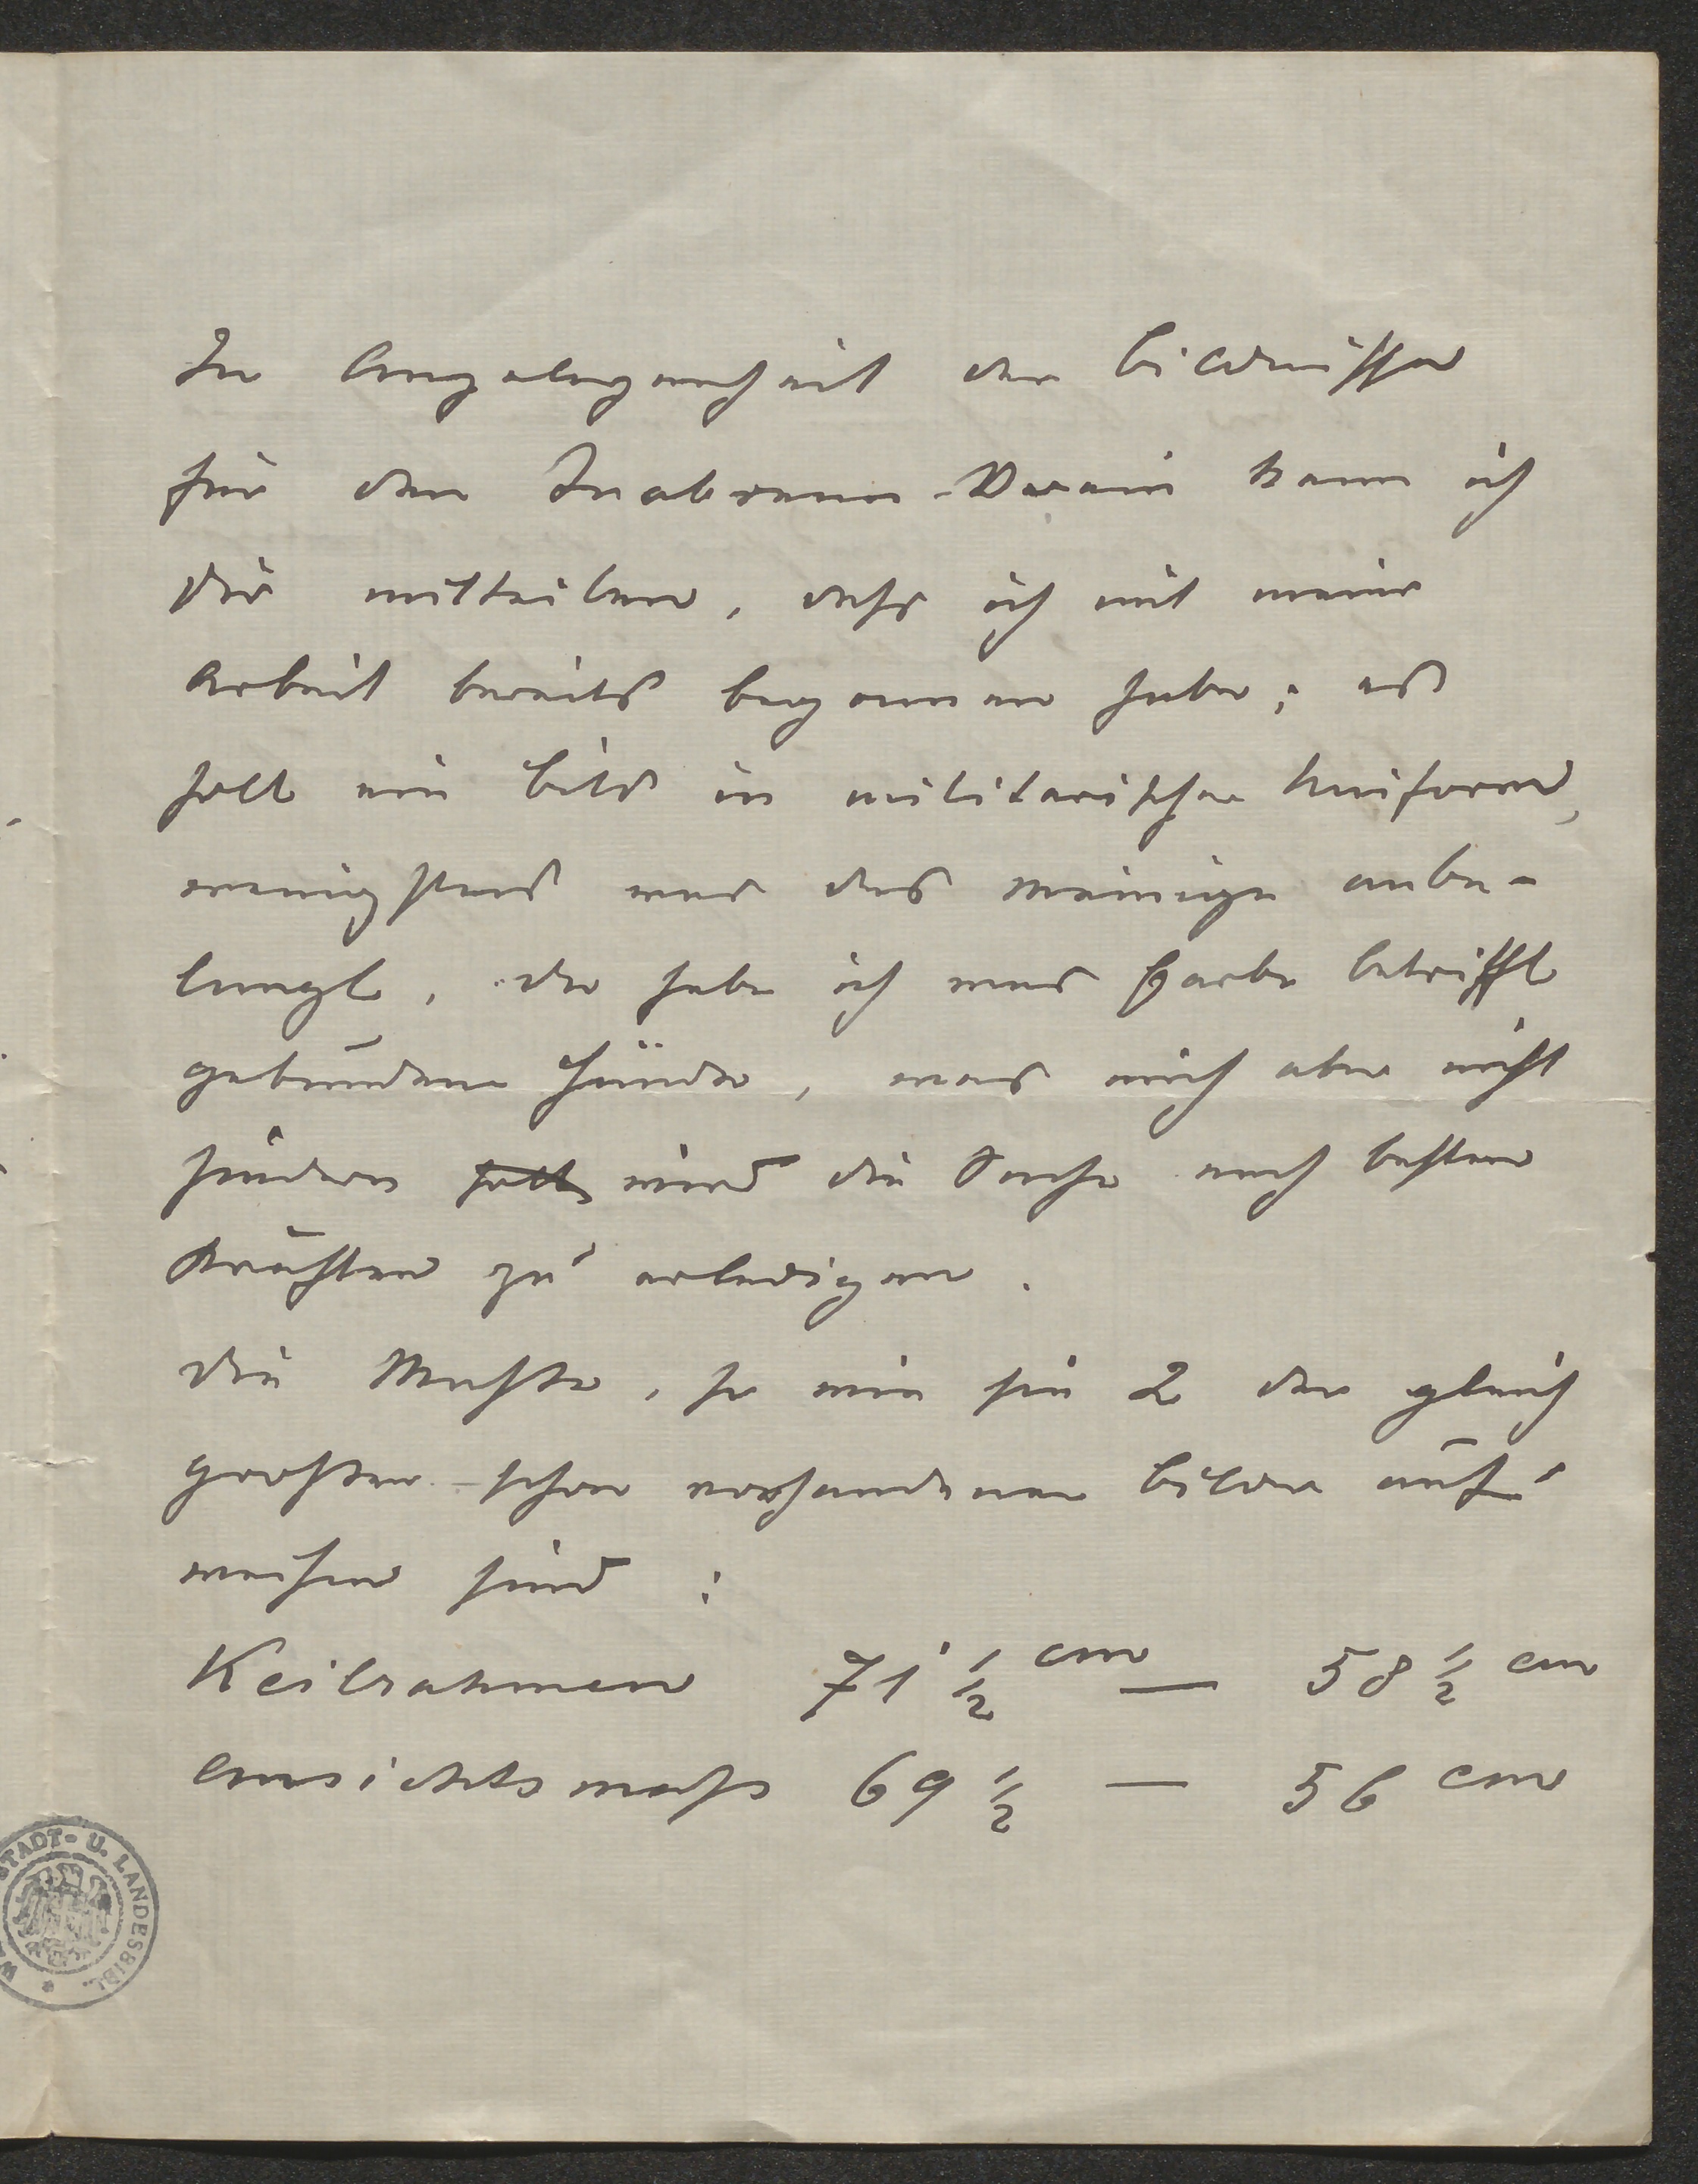 In Angelegenheit der Bildnisse
für den Inabrenn-Verein kann ich
Dir mitteilen, dass ich mit meiner
Arbeit bereits begonnen habe; es
soll ein Bild in militärischer Uniform,
wenigstens was das meinige anbe-
langt, da habe ich was Farbe betrifft
gebundene Hände, was mich aber nicht
hindern soll wird die Sache nach besten
Kräften zu erledigen.
Die Maße, so wie sie 2 der gleich
großen schon vorhandenen Bilder auf-
weisen sind:
Keilrahmen 71 ½ cm — 58 ½ cm
Ansichtsmass 69 ½ — 56 cm
STADT- U. LANDESBIBL.